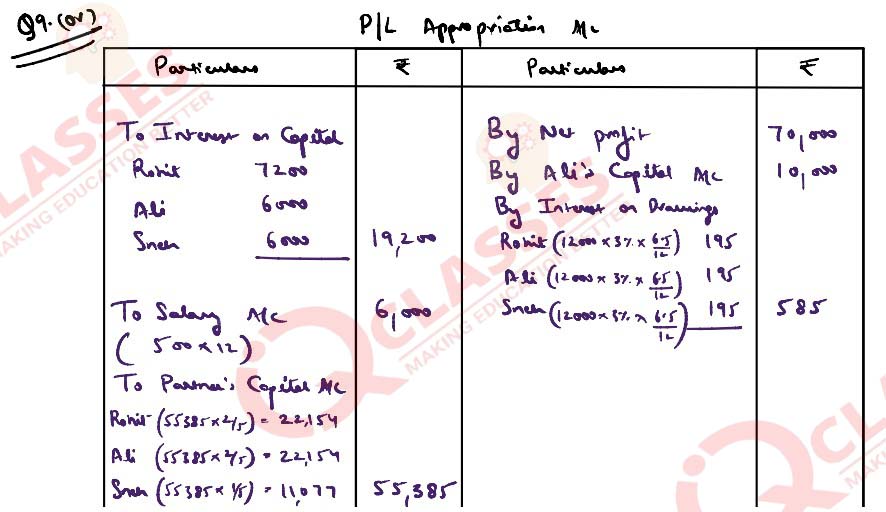 Q9. (Or)
P/L Appropriation A/c
Particulars ₹ Particulars ₹
To Interest on Capital
Rohit 7200
Ali 6000
Sneh 6000 19,200
To Salary A/c 6,000
( 500 x 12)
To Partner's Capital A/c
Rohit (55385 x 2/5) = 22,154
Ali (55385 x 2/5) = 22,154
Sneh (55385 x 1/5) = 11,077 55,385
By Net profit 70,000
By Ali's Capital A/c 10,000
By Interest on Drawings
Rohit (12000 x 3% x 6.5/12) 195
Ali (12000 x 3% x 6.5/12) 195
Sneh (12000 x 3% x 6.5/12) 195 585
CLASSES
MAKING EDUCATION BETTER
CLASSES
MAKING EDUCATION BETTER
CLASSES